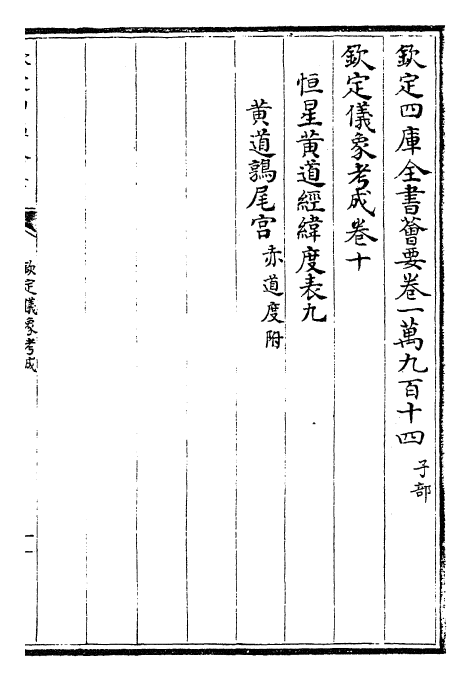 欽定四庫全書薈要卷一萬九百十四 子部
欽定儀象考成卷十
恒星黄道經緯度表九
黄道鶉尾宫 赤道度附
欽定儀象考成